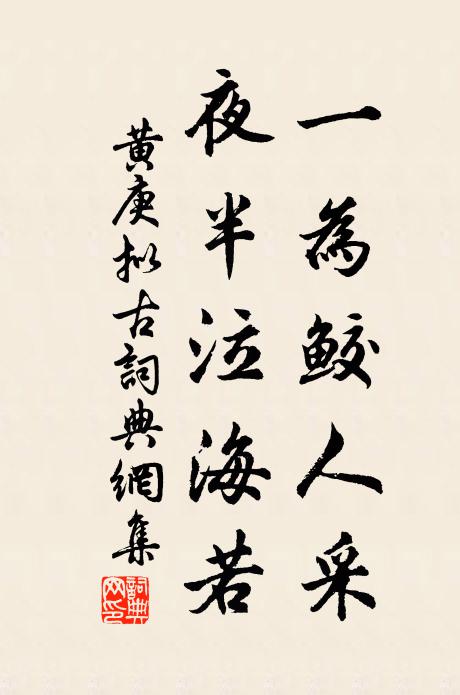 一為鮫人采
夜半泣海若
黃庚拟古詞典網集
詞典網印